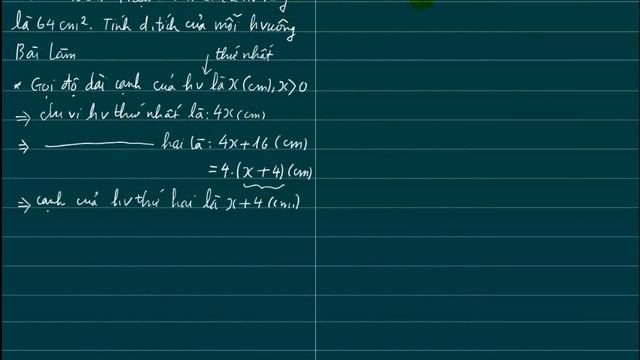 là 64 cm². Tính d.tích của mỗi hvuông
Bài làm
thứ nhất
* Gọi độ dài cạnh của hv là x (cm), x>0
⇒ chu vi hv thứ nhất là: 4x (cm)
⇒ ——— hai là: 4x+16 (cm)
= 4.(x+4) (cm)
⇒ cạnh của hv thứ hai là x+4 (cm)